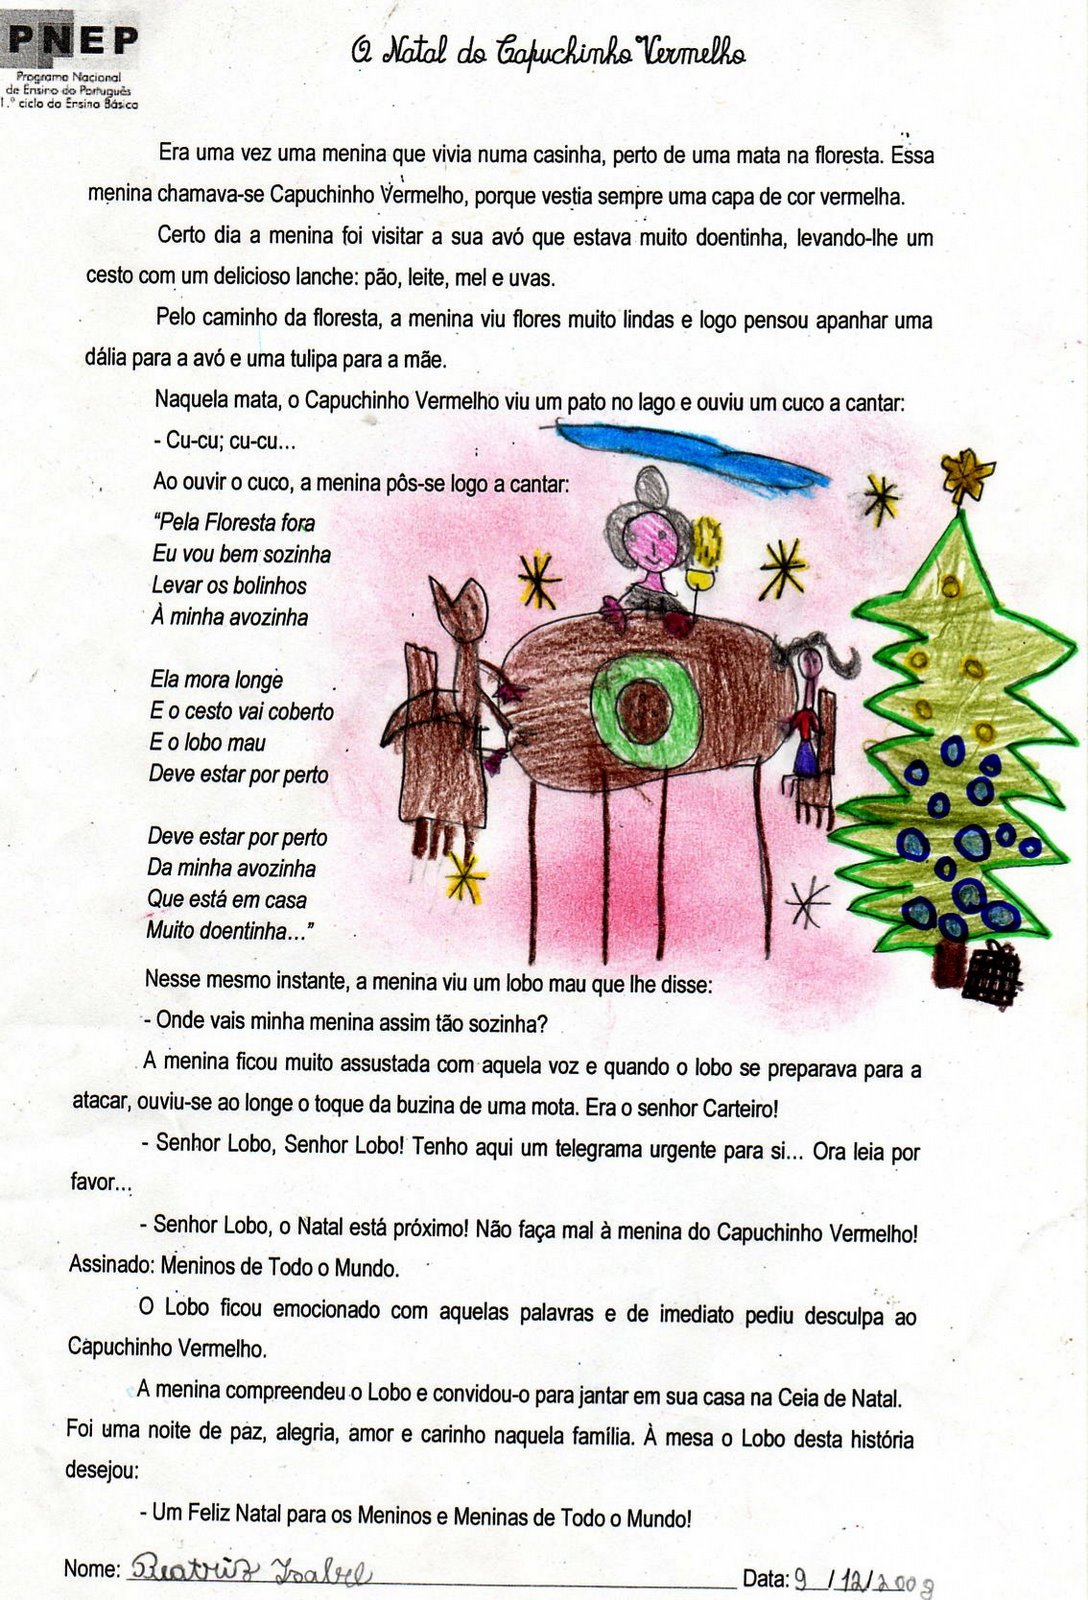 PNEP
Programa Nacional
de Ensino do Português
1.º ciclo do Ensino Básico
O Natal do Capuchinho Vermelho
Era uma vez uma menina que vivia numa casinha, perto de uma mata na floresta. Essa
menina chamava-se Capuchinho Vermelho, porque vestia sempre uma capa de cor vermelha.
Certo dia a menina foi visitar a sua avó que estava muito doentinha, levando-lhe um
cesto com um delicioso lanche: pão, leite, mel e uvas.
Pelo caminho da floresta, a menina viu flores muito lindas e logo pensou apanhar uma
dália para a avó e uma tulipa para a mãe.
Naquela mata, o Capuchinho Vermelho viu um pato no lago e ouviu um cuco a cantar:
- Cu-cu; cu-cu...
Ao ouvir o cuco, a menina pôs-se logo a cantar:
“Pela Floresta fora
Eu vou bem sozinha
Levar os bolinhos
À minha avozinha
Ela mora longe
E o cesto vai coberto
E o lobo mau
Deve estar por perto
Deve estar por perto
Da minha avozinha
Que está em casa
Muito doentinha...”
Nesse mesmo instante, a menina viu um lobo mau que lhe disse:
- Onde vais minha menina assim tão sozinha?
A menina ficou muito assustada com aquela voz e quando o lobo se preparava para a
atacar, ouviu-se ao longe o toque da buzina de uma mota. Era o senhor Carteiro!
- Senhor Lobo, Senhor Lobo! Tenho aqui um telegrama urgente para si... Ora leia por
favor...
- Senhor Lobo, o Natal está próximo! Não faça mal à menina do Capuchinho Vermelho!
Assinado: Meninos de Todo o Mundo.
O Lobo ficou emocionado com aquelas palavras e de imediato pediu desculpa ao
Capuchinho Vermelho.
A menina compreendeu o Lobo e convidou-o para jantar em sua casa na Ceia de Natal.
Foi uma noite de paz, alegria, amor e carinho naquela família. À mesa o Lobo desta história
desejou:
- Um Feliz Natal para os Meninos e Meninas de Todo o Mundo!
Nome: Beatriz Isabel Data: 9/12/2009